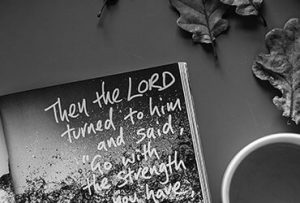 Then the LORD
turned to him
and said,
"Go with
the strength
you have,